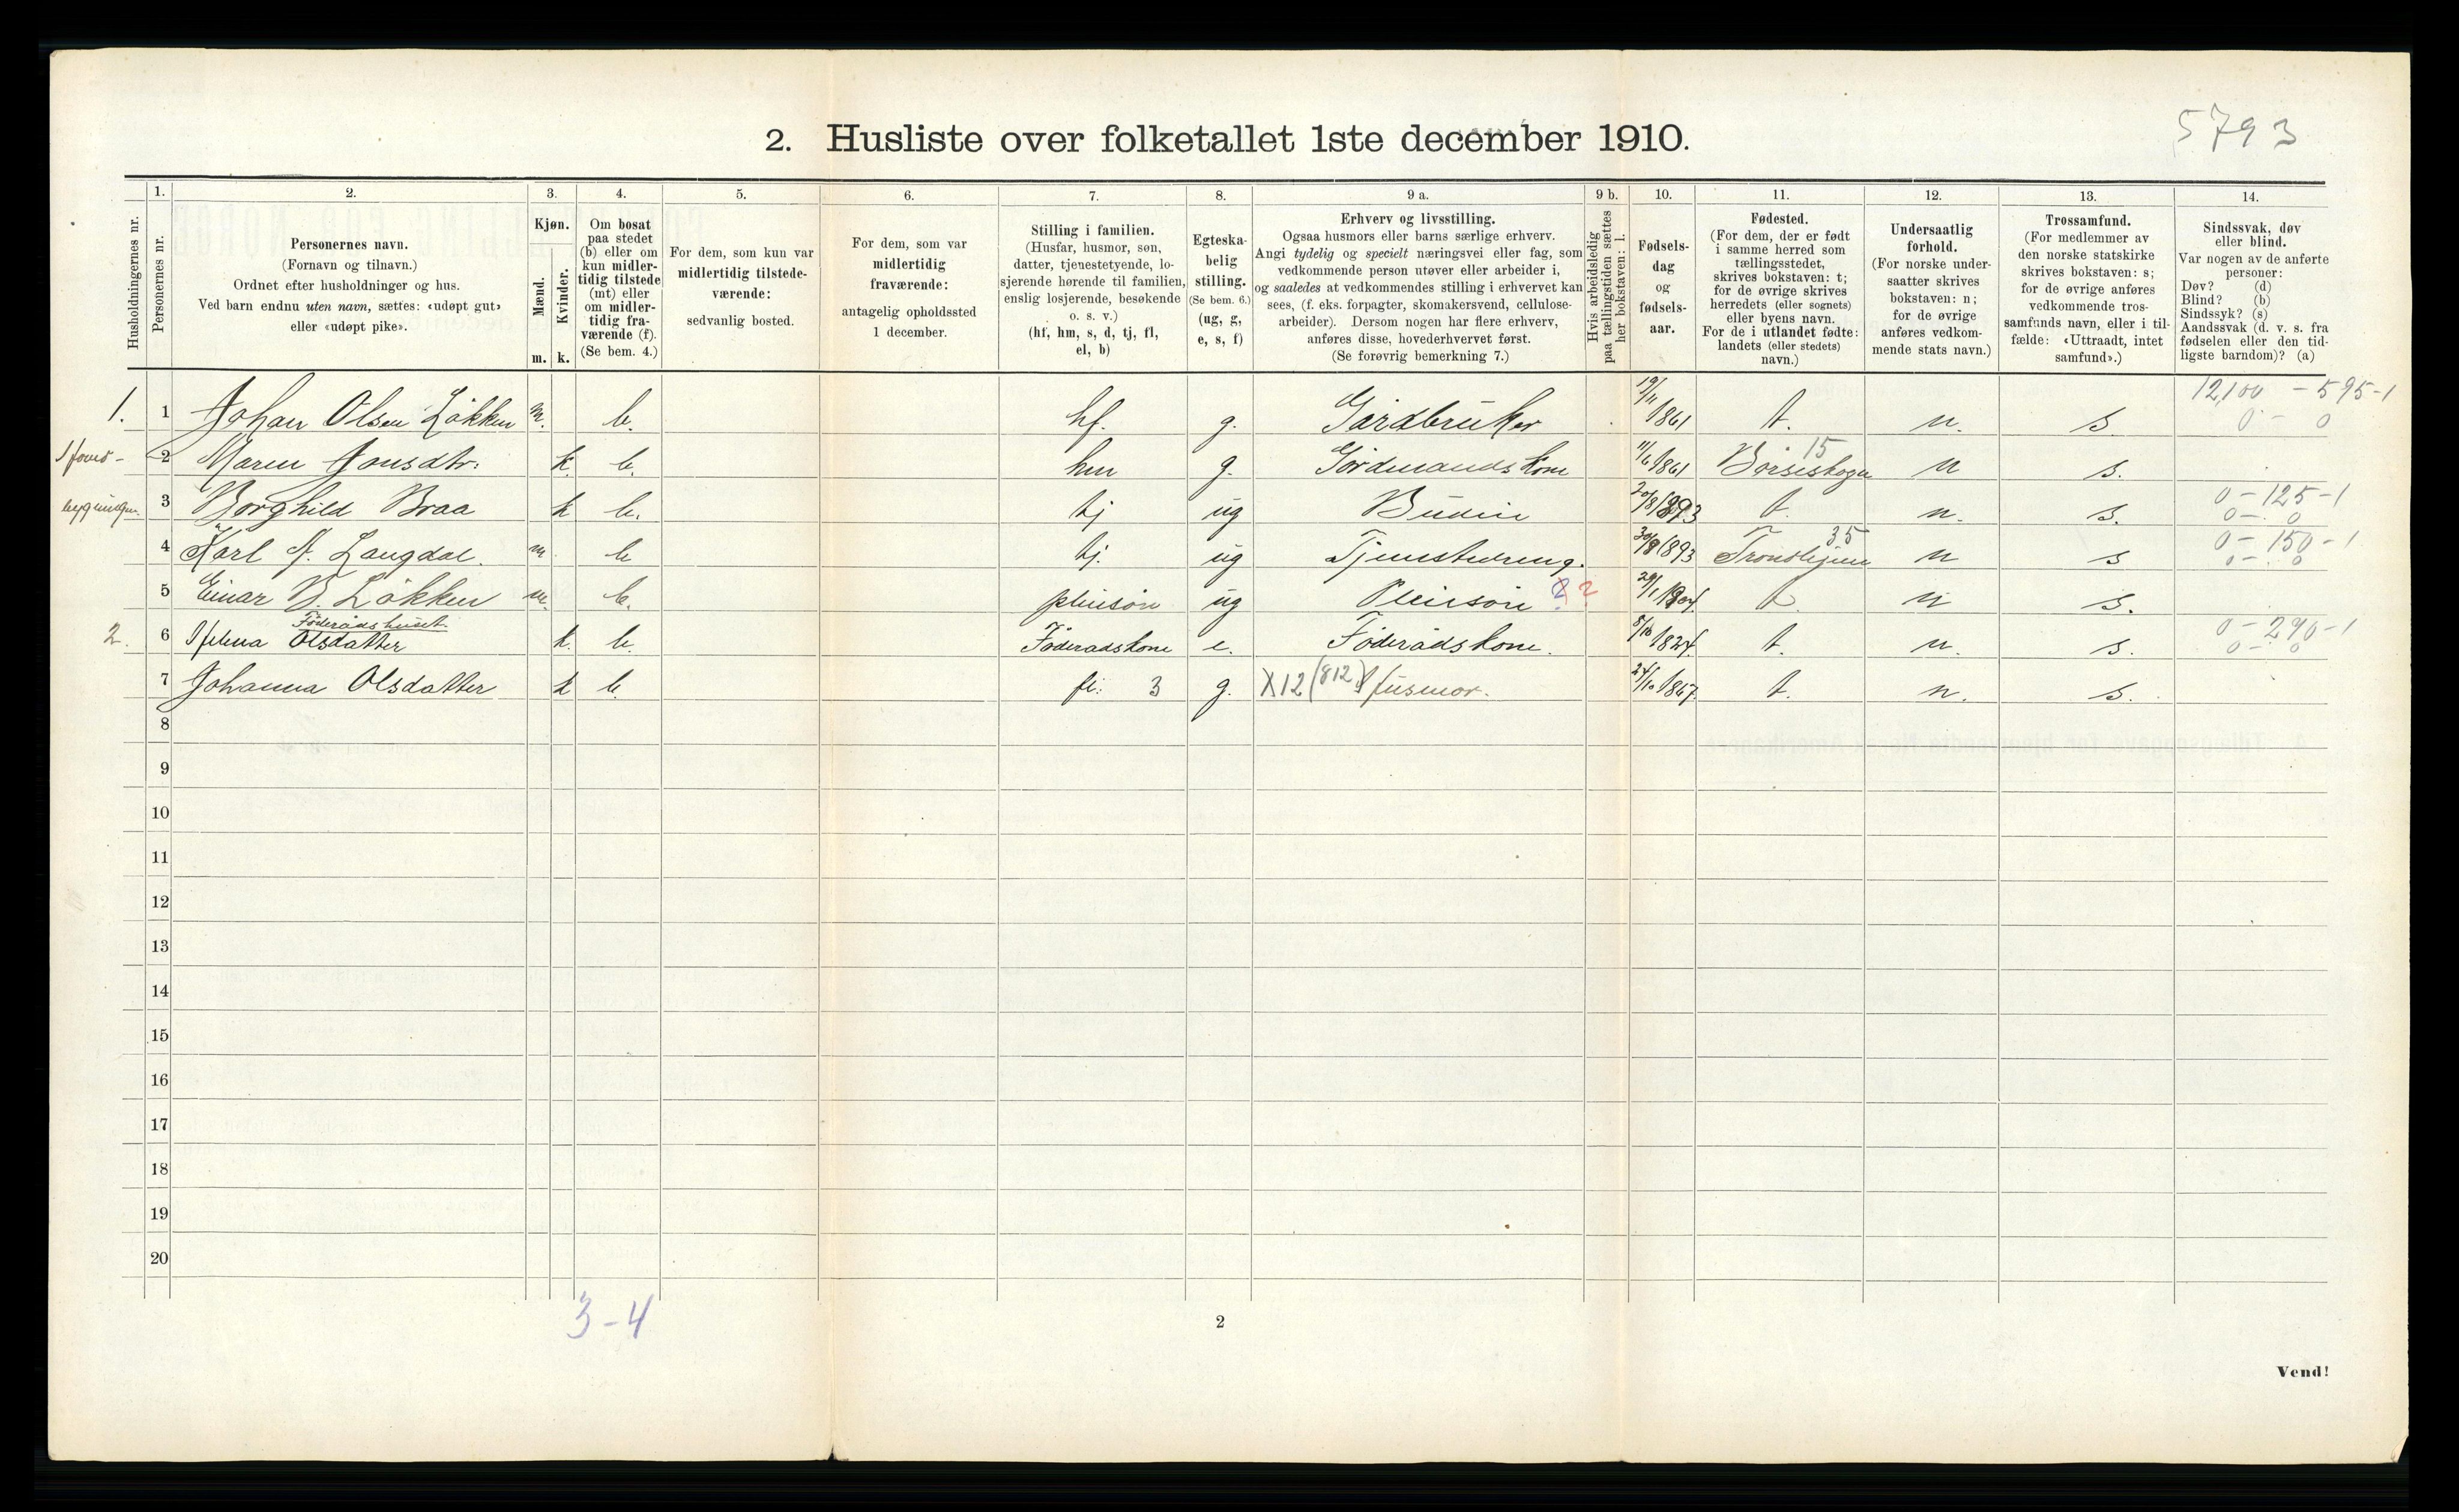 5793
2. Husliste over folketallet 1ste december 1910.
Husholdningernes nr.
1.
Personernes nr.
2.
Personernes navn.
(Fornavn og tilnavn.)
Ordnet efter husholdninger og hus.
Ved barn endnu uten navn, sættes: «udøpt gut»
eller «udøpt pike».
3.
Kjøn.
Mænd.
Kvinder.
m. k.
4.
Om bosat
paa stedet
(b) eller om
kun midler-
tidig tilstede
(mt) eller
om midler-
tidig fra-
værende (f).
(Se bem. 4.)
5.
For dem, som kun var
midlertidig tilstede-
værende:
sedvanlig bosted.
6.
For dem, som var
midlertidig
fraværende:
antagelig opholdssted
1 december.
7.
Stilling i familien.
(Husfar, husmor, søn,
datter, tjenestetyende, lo-
sjerende hørende til familien,
enslig losjerende, besøkende
o. s. v.)
(hf, hm, s, d, tj, fl,
el, b)
8.
Egteska-
belig
stilling.
(Se bem. 6.)
(ug, g,
e, s, f)
9 a.
Erhverv og livsstilling.
Ogsaa husmors eller barns særlige erhverv.
Angi tydelig og specielt næringsvei eller fag, som
vedkommende person utøver eller arbeider i,
og saaledes at vedkommendes stilling i erhvervet kan
sees, (f. eks. forpagter, skomakersvend, cellulose-
arbeider). Dersom nogen har flere erhverv,
anføres disse, hovederhvervet først.
(Se forøvrig bemerkning 7.)
9 b.
Hvis arbeidsledig
paa tællingstiden sættes
her bokstaven: l.
10.
Fødsels-
dag
og
fødsels-
aar.
11.
Fødested.
(For dem, der er født
i samme herred som
tællingsstedet,
skrives bokstaven: t;
for de øvrige skrives
herredets (eller sognets)
eller byens navn.
For de i utlandet fødte:
landets (eller stedets)
navn.)
12.
Undersaatlig
forhold.
(For norske under-
saatter skrives
bokstaven: n;
for de øvrige
anføres vedkom-
mende stats navn.)
13.
Trossamfund.
(For medlemmer av
den norske statskirke
skrives bokstaven: s;
for de øvrige anføres
vedkommende tros-
samfunds navn, eller i til-
fælde: «Uttraadt, intet
samfund».)
14.
Sindssvak, døv
eller blind.
Var nogen av de anførte
personer:
Døv? (d)
Blind? (b)
Sindssyk? (s)
Aandssvak (d. v. s. fra
fødselen eller den tid-
ligste barndom)? (a)
12,100 - 595-1
1. 1 Johan Olsen Løkken m. b. hf. g. Gårdbruker 19/11 1861 t. n. s. 0 - 0
2 Maren Jonsdtr. k. b. hm g. Gårdmandskone 11/6 1861 Børseskogn 15 n s.
0-125-1
3 Borghild Braa k b. tj ug Budeie 20/8 1893 t. n. s. 0-0
0-150-1
4 Karl A. Langdal. m b tj. ug Tjenestedreng. 30/8 1893 Trondhjem 35 n s 0-0
5 Einar B. Løkken m. b. pleiesön ug Pleiesön 2 ? 29/1 1904 t. n s.
Föderådshuset.
0-290-1
2. 6 Olsdatter k. b. Föderadskone e. Föderådskone. 5/10 1824. t. n. s. 0-0
7 Johanna Olsdatter k b. fl. 3 g. X12 (812) Husmor. 24/10 1867. t. n. s.
8
9
10
11
12
13
14
15
16
17
18
19
20
3-4
2
Vend!